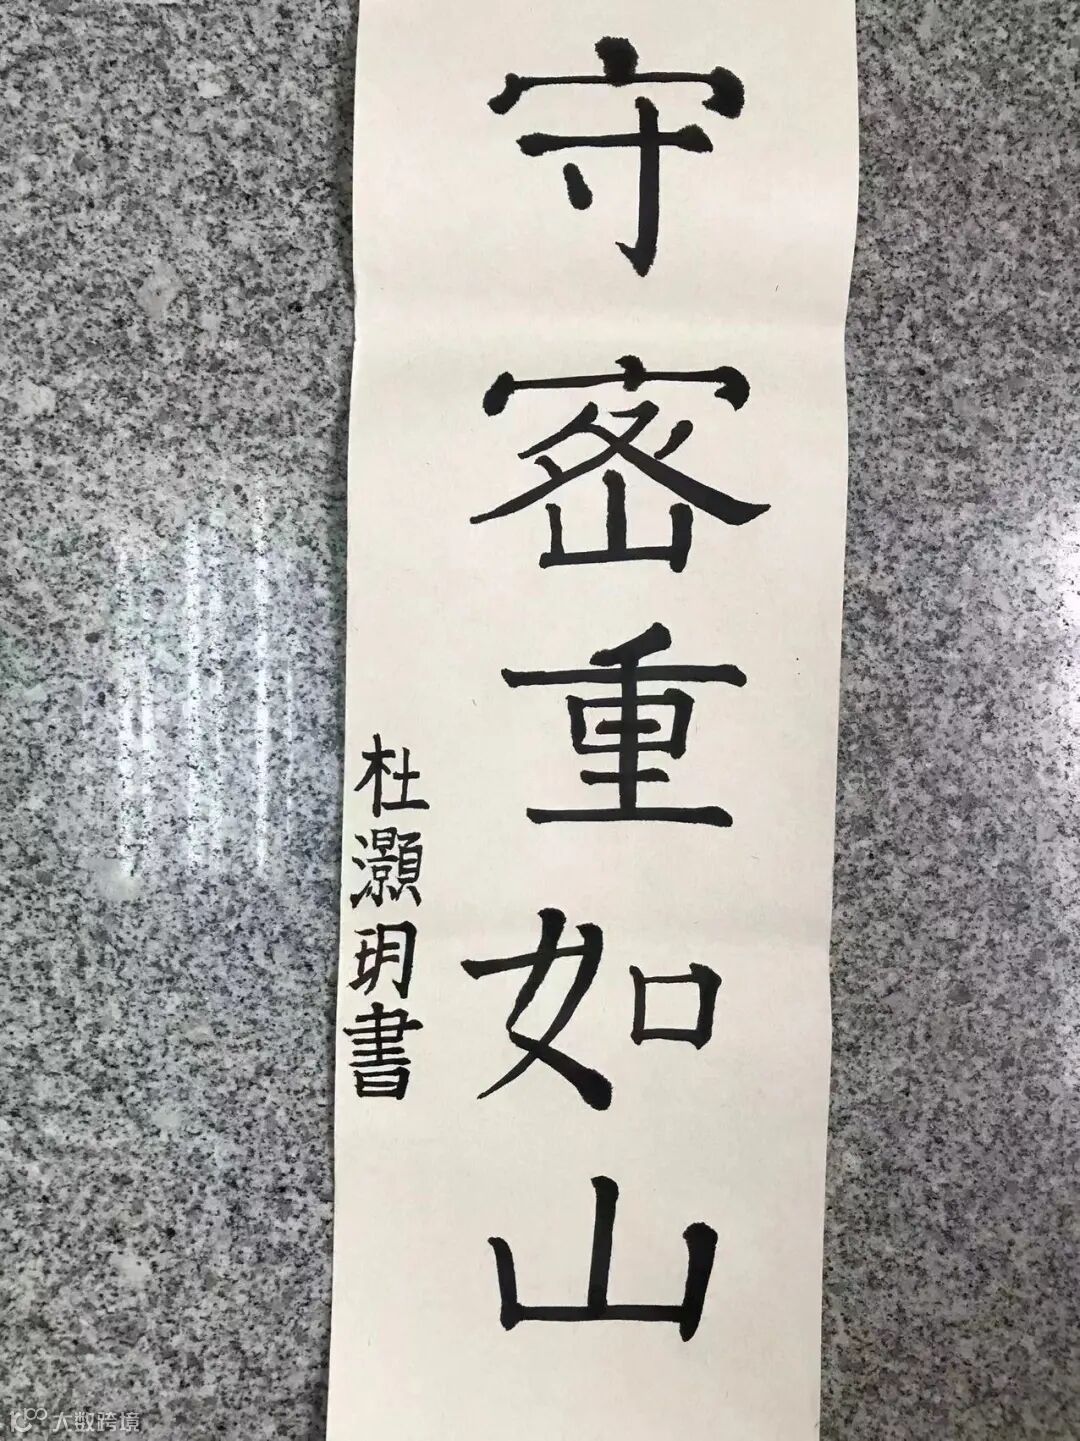 守密重如山
杜灝玥書
大数跨境